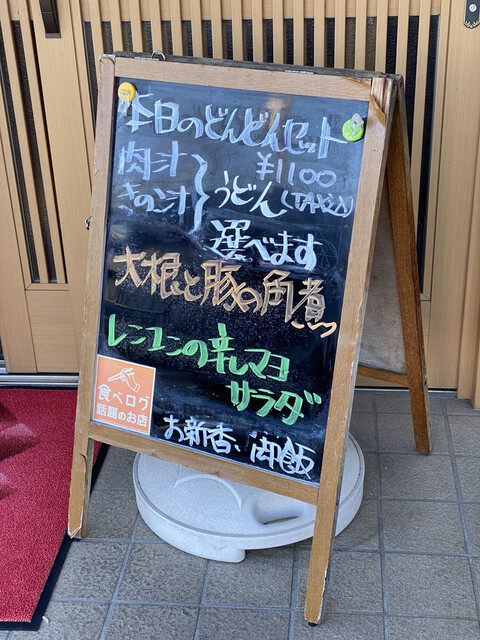 本日のどんどんセット
¥1100
肉汁
きのこ汁
うどん
(TAX込)
選べます
大根と豚の角煮
レンコンの辛しマヨ
サラダ
食べログ
話題のお店
お新香、肉飯